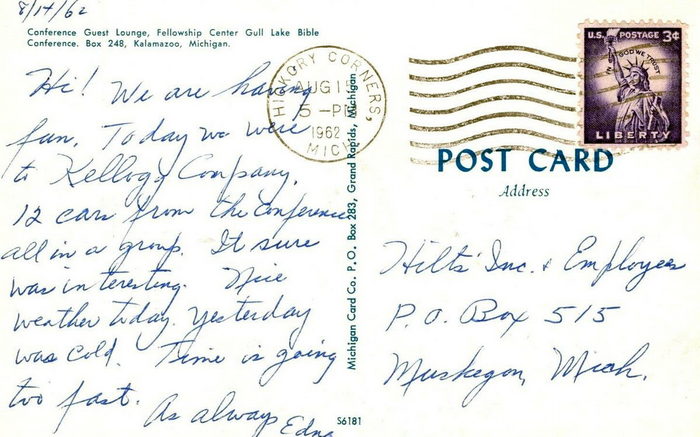 8/14/62
Conference Guest Lounge, Fellowship Center Gull Lake Bible
Conference. Box 248, Kalamazoo, Michigan.
Hi! We are having
fun. Today we were
to Kellogg Company.
12 cars from the Conference
all in a group. It sure
was interesting. Nice
weather today. Yesterday
was cold. Time is going
too fast.
As always Edna
HICKORY CORNERS,
AUG 15
5 - PM
1962
MICH
Michigan Card Co., P.O. Box 283, Grand Rapids, Michigan
S6181
U.S. POSTAGE 3¢
IN GOD WE TRUST
LIBERTY
POST CARD
Address
Hilts' Inc. & Employees
P.O. Box 515
Muskegon, Mich.